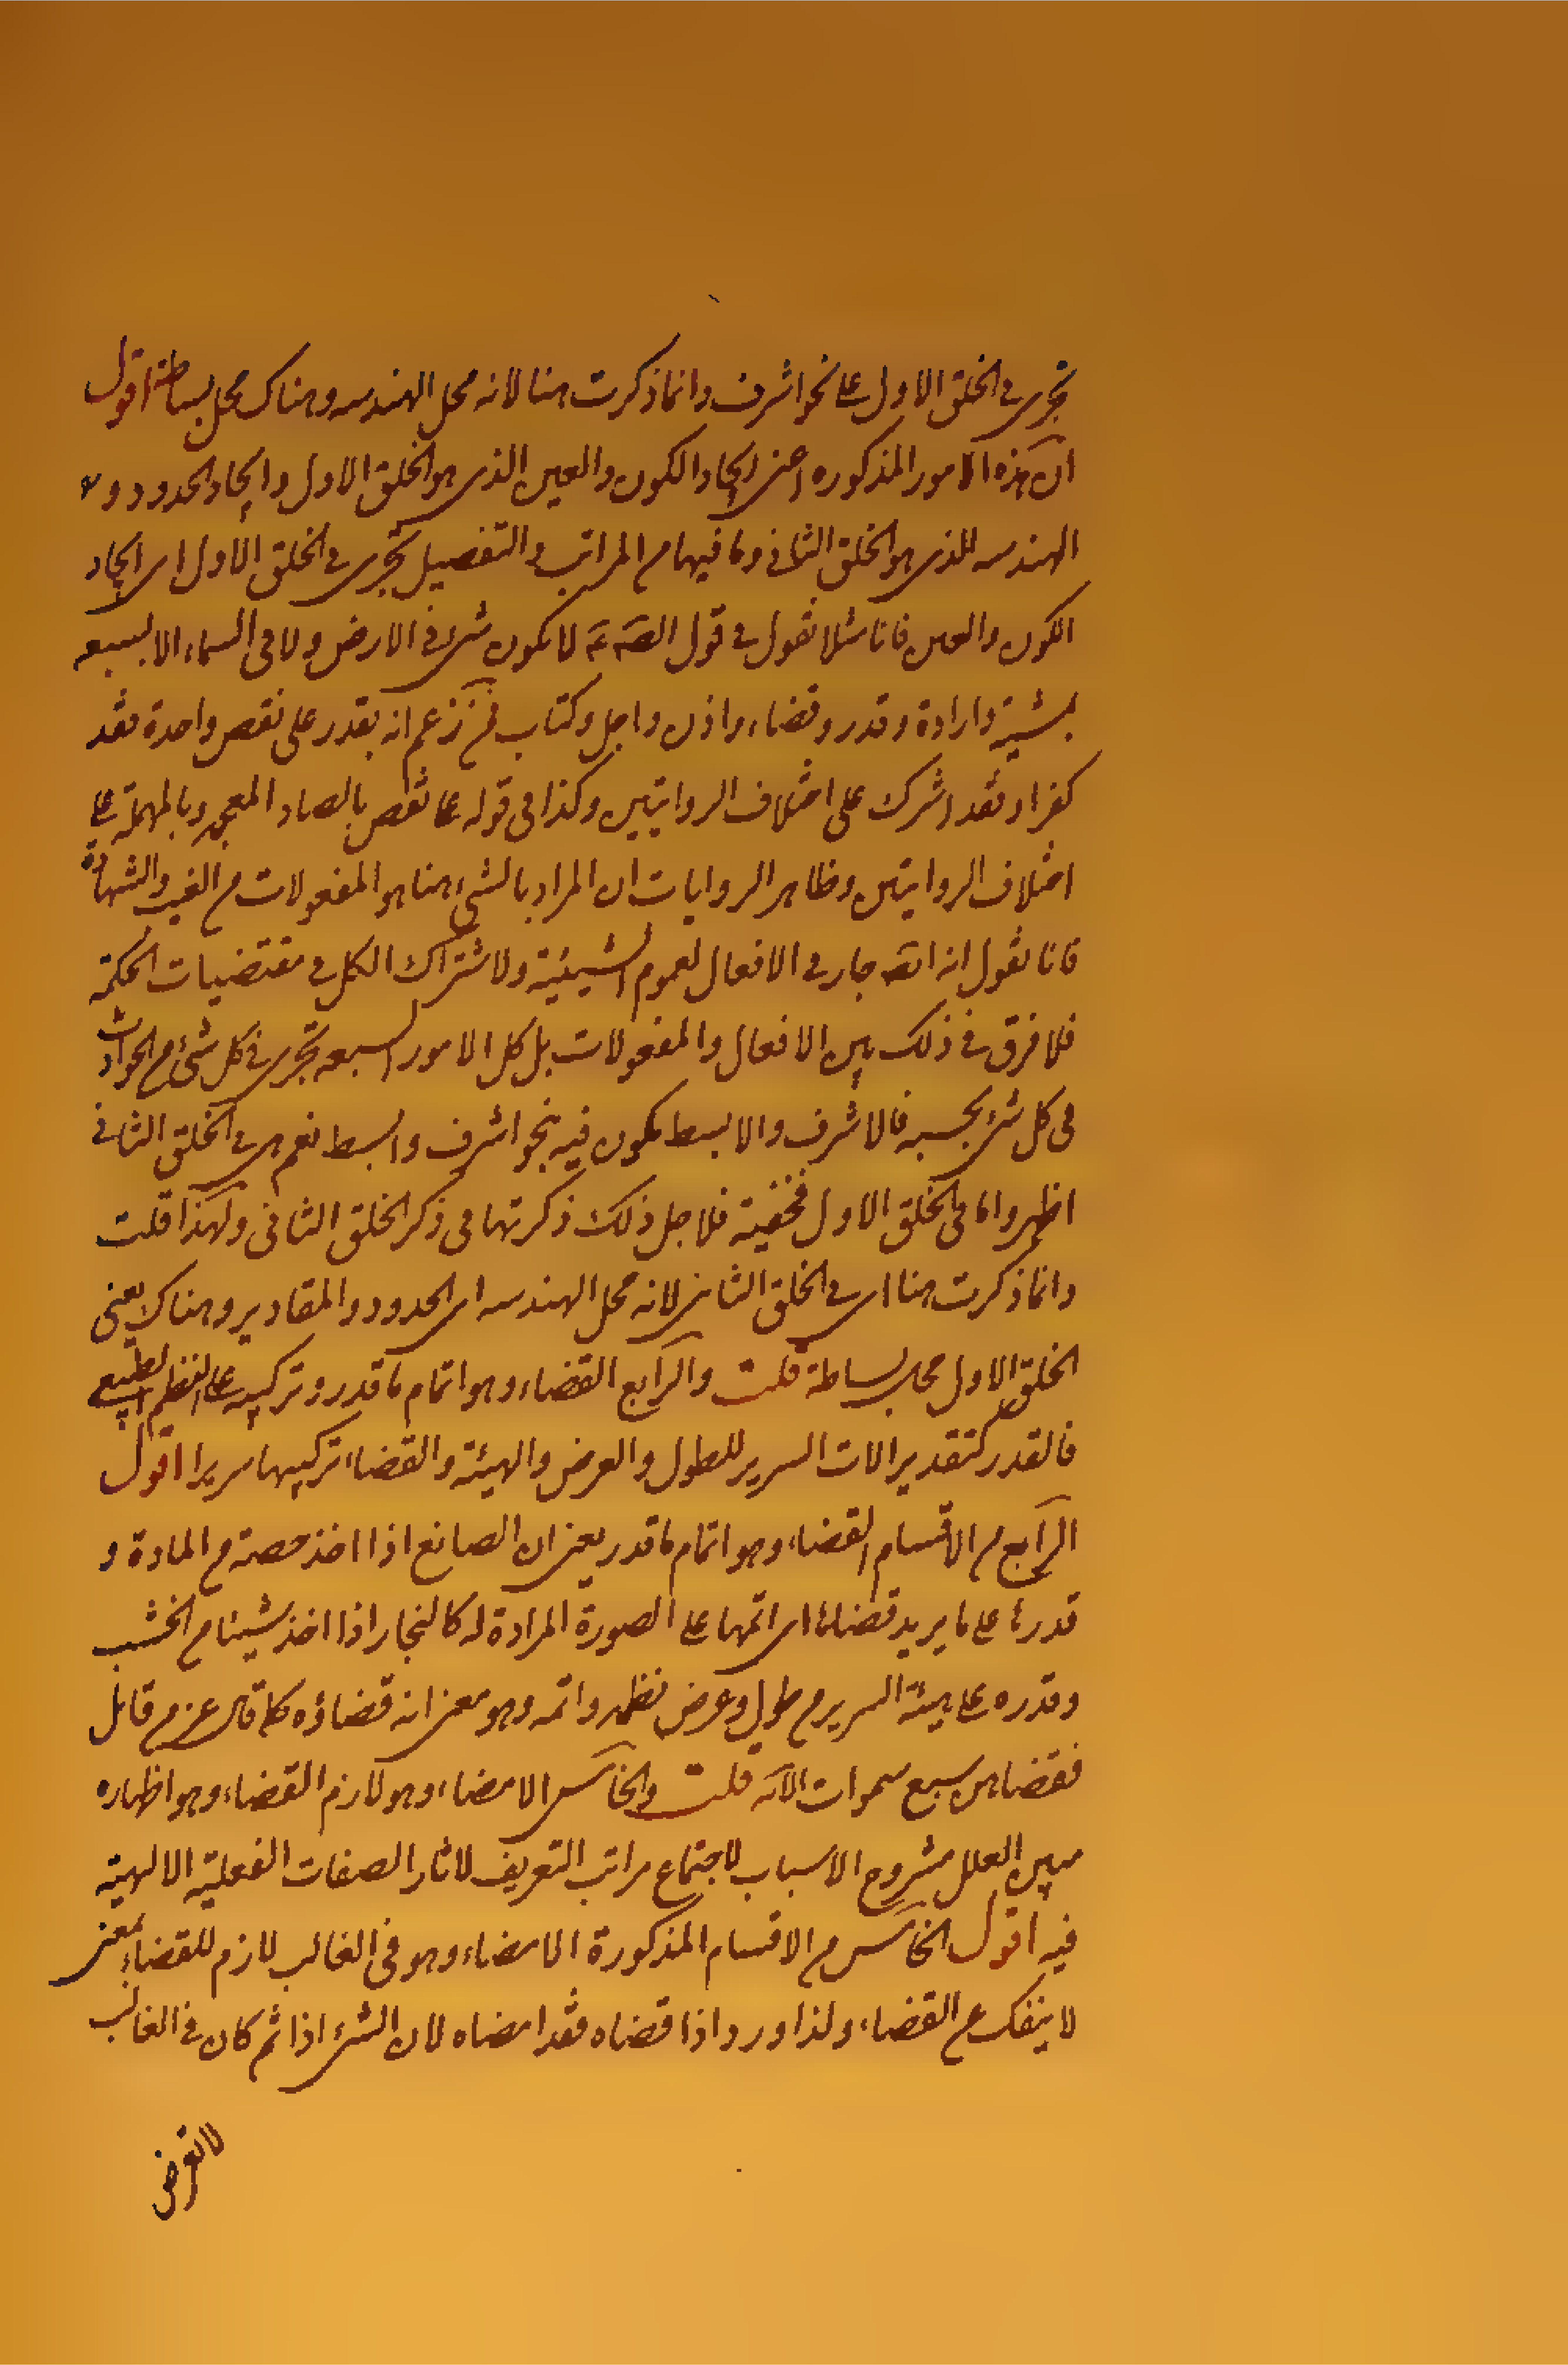 تجرى فى الخلق الاول على نحو اشرف وانما ذكرت هنا لانه محل الهندسه وهناك محل بساطة اقول
ان هذه الامور المذكوره اعنى ايجاد الكون والعين الذى هو الخلق الاول وايجاد الحدود و
الهندسه للذى هو الخلق الثانى وما فيها من المراتب والتفصيل تجرى فى الخلق الاول اى ايجاد
الكون والعين فانا مثلا نقول فى قول الصه ع لا يكون شىء فى الارض ولا فى السماء الا بسبعه
بمشية وارادة وقدر وقضاء واذن واجل وكتاب فمن زعم انه يقدر على نقص واحدة فقد
كفر او فقد اشرك على اختلاف الروايتين وكذا فى قوله على نقص بالصاد المعجمه وبالمهملة على
اختلاف الروايتين وظاهر الروايات ان المراد بالشىء هنا هو المفعولات من الغيب والشهادة
فانا نقول انه اتصه جار فى الافعال لعموم الشيئية ولاشتراك الكل فى مقتضيات الحكمة
فلا فرق فى ذلك بين الافعال والمفعولات بل كل الامور السبعه تجرى فى كل شىء من الحوادث
فى كل شىء بحسبه فالاشرف والابسط يكون فيه بنحو اشرف وابسط نعم هى فى الخلق الثانى
اظهر واما فى الخلق الاول فخفية فلاجل ذلك ذكرتها فى ذكر الخلق الثانى ولهذا قلت
وانما ذكرت هنا اى فى الخلق الثانى لانه محل الهندسه اى الحدود والمقادير وهناك يعنى
الخلق الاول محل بساطة قلت والرابع القضاء وهو اتمام ما قدر وتركيبه على النظم الطبيعى
فالقدر كتقدير الات السرير للطول والعرض والهيئة والقضاء تركيبها سريرا اقول
الرابع من الاقسام القضاء وهو اتمام ما قدر يعنى ان الصانع اذا اخذ حصة من المادة و
قدرها على ما يريد قضاها اى اتمها على الصورة المرادة له كالنجار اذا اخذ شيئا من الخشب
وقدره على هيئة السرير من طول وعرض نظمه واتمه وهو معنى انه قضاؤه كما قال عز من قائل
فقضاهن سبع سموات الآيه قلت والخامس الامضاء وهو لازم القضاء وهو اظهاره
مبين العلل مشروح الاسباب لاجتماع مراتب التعريف لاثار الصفات الفعلية الالهية
فيه اقول الخامس من الاقسام المذكورة الامضاء وهو فى الغالب لازم للقضاء بمعنى
لا ينفك عن القضاء ولذا ورد اذا قضاه فقد امضاه لان الشىء اذا تم كان فى الغالب